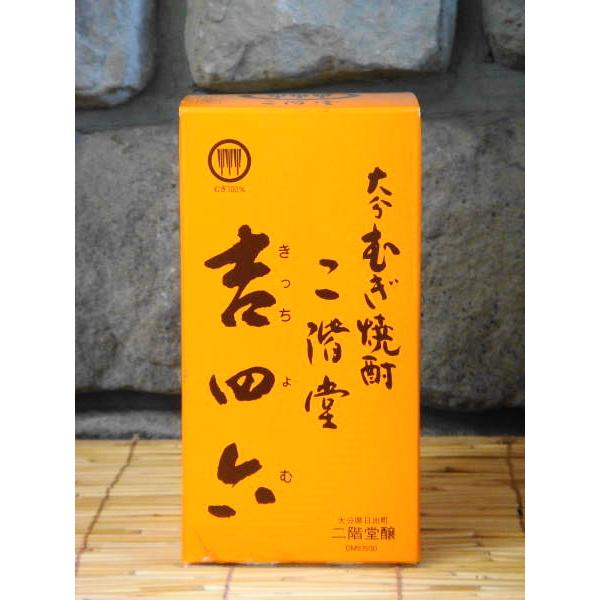 大分むぎ焼酎
二階堂
吉四六
きっちょむ
むぎ100%
大分県日出町
二階堂醸